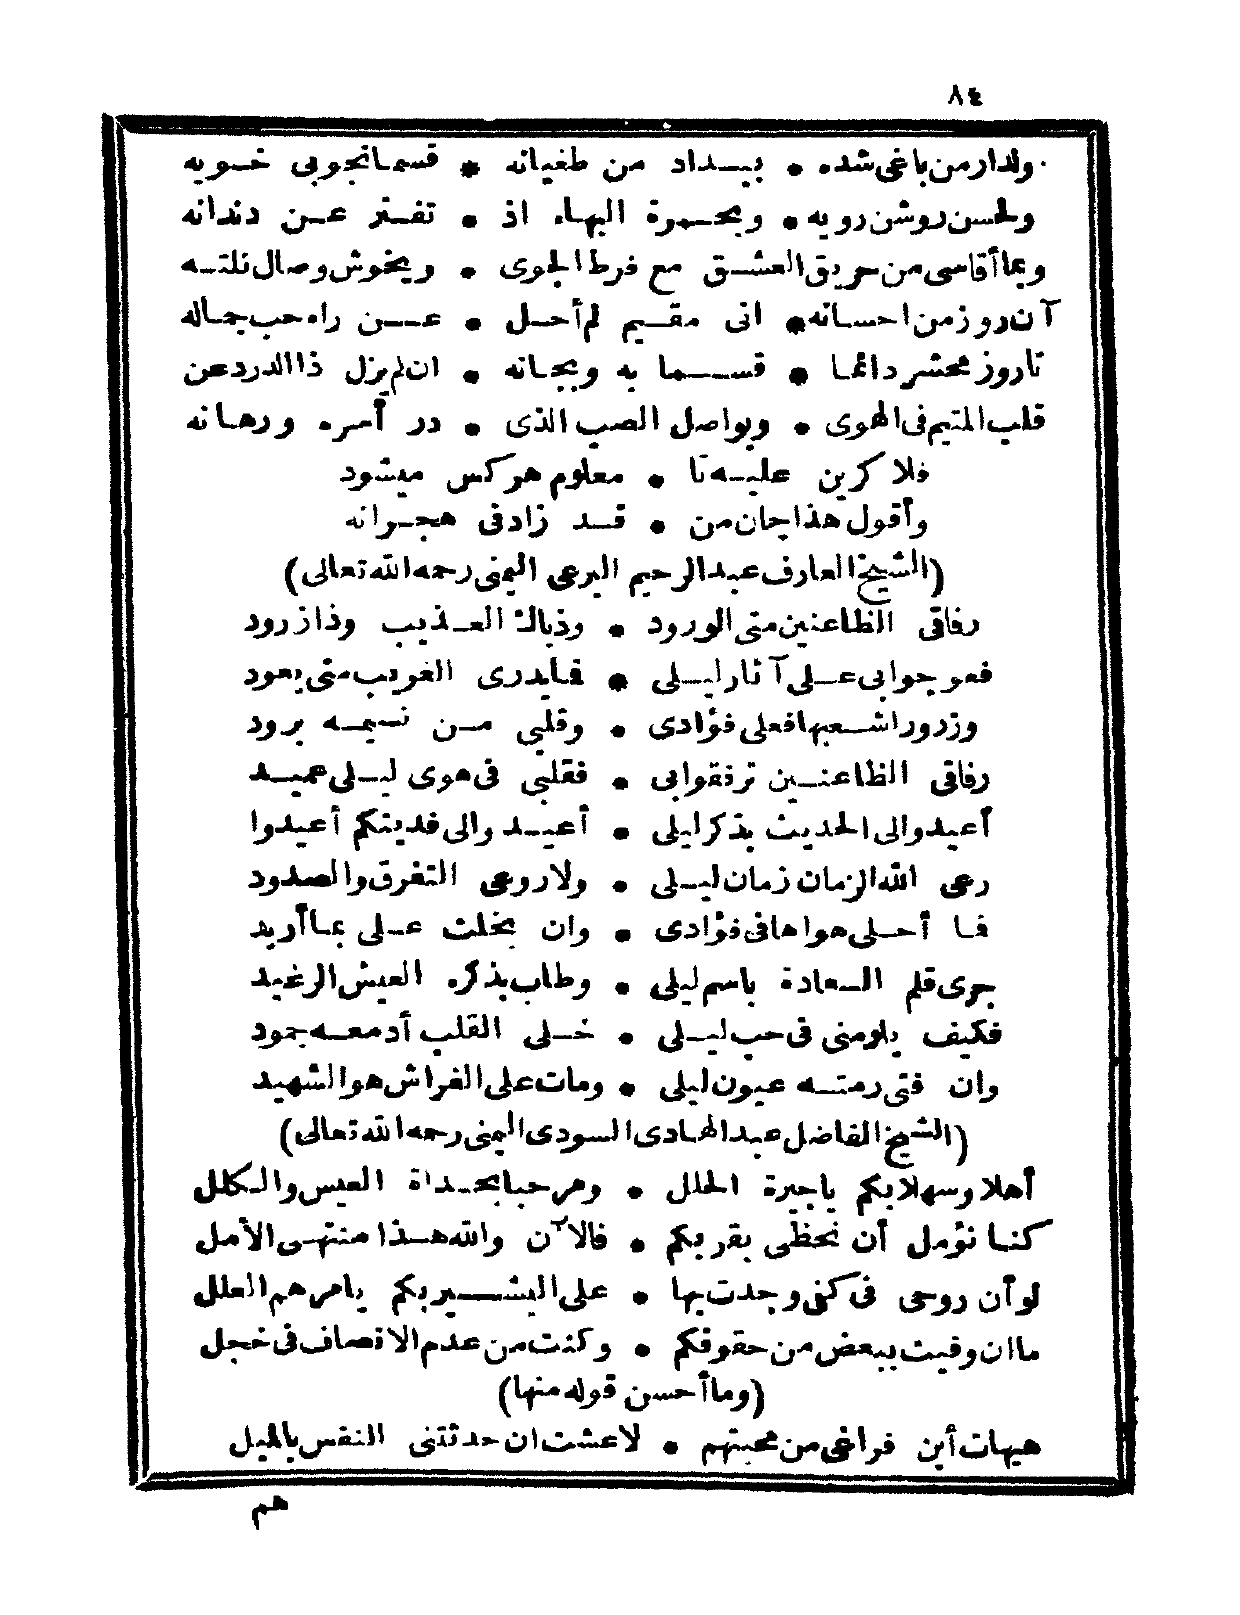 ٨٤
ولدار من باغی شده * بيداد من طغيانه * قسما بخوبی خويه
ولحسن روشن رويه * وبحمرة البهاء اذ * تفتر عن دندانه
وبما أقاسی من حريق العشق مع فرط الجوی * وبخوش وصال نلته
آن روز من احسانه * انی مقيم لم أحل * عن راه حب جماله
تاروز محشر دائما * قسما به وبجانه * ان لم يزل ذا الدرد عن
قلب المتيم فی الهوی * ويواصل الصب الذی * در أمره ورهانه
فلا كرين عليه تا * معلوم هركس ميشود
وأقول هذا جان من * قد زاد فی هجرانه
(الشيخ العارف عبد الرحيم البرعی اليمنی رحمه الله تعالی)
رفاقی الظاعنين متی الورود * وذياك العذيب وذا زرود
فعو جوابی علی آثار ليلی * فايدری الغريب متی يعود
وزدورا شعبها فعلی فؤادی * وقلبی من نسيمه برود
رفاقی الظاعنين ترفقوا بی * فقلبی فی هوی ليلی عميد
أعيدوا لی الحديث بذكر ليلی * أعيد والی فديتكم أعيدوا
رعی الله الزمان زمان ليلی * ولا روعی التفرق والصدود
فا أحلی هواها فی فؤادی * وان بخلت علی بما أريد
جری قلم السعادة باسم ليلی * وطاب بذكره العيش الرغيد
فكيف يلومنی فی حب ليلی * خلی القلب أدمعه جمود
وان فتی رمته عيون ليلی * ومات علی الفراش هو الشهيد
(الشيخ الفاضل عبد الهادی السودی اليمنی رحمه الله تعالی)
أهلا وسهلا بكم ياجيرة الحلل * ومرحبا بحداة العيس والكلل
كنا نؤمل أن نحظی بقربكم * فالآن والله هذا منتهی الأمل
لو أن روحی فی كفی وجدت بها * علی البشير بكم يامرهم العلل
ما ان وفيت ببعض من حقوقكم * وكنت من عدم الانصاف فی خجل
(وما أحسن قوله منها)
هيهات أين فراغی من محبتهم * لا عشت ان حدثتنی النفس بالميل
هم